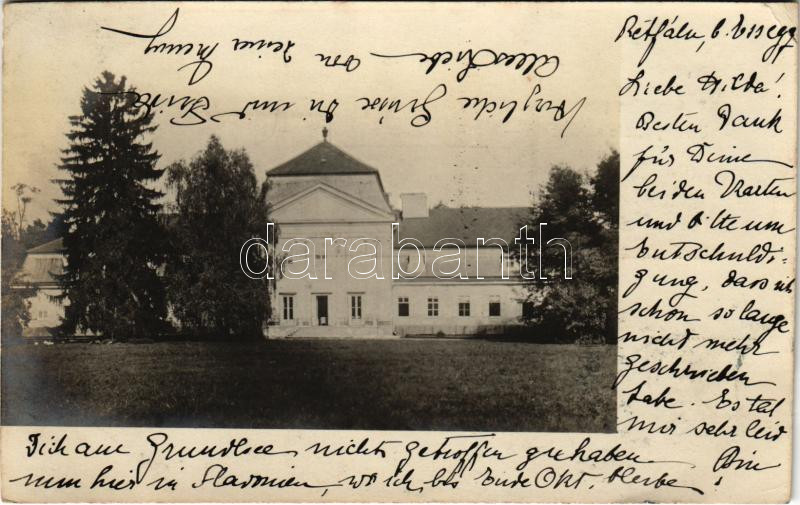 Rétfálu, b. Essegg
Liebe Hilda!
Besten Dank
für Deine
beiden Karten
und bitte um
Entschuldi-
gung, dass ich
schon so lange
nicht mehr
geschrieben
habe. Es tat
mir sehr leid
Dich am Grundlsee nicht getroffen zu haben
Bin
nun hier in Slavonien, wo ich bis Ende Okt. bleibe!
Alles Liebe von Deine
Herzliche Grüsse Dir und
darabanth